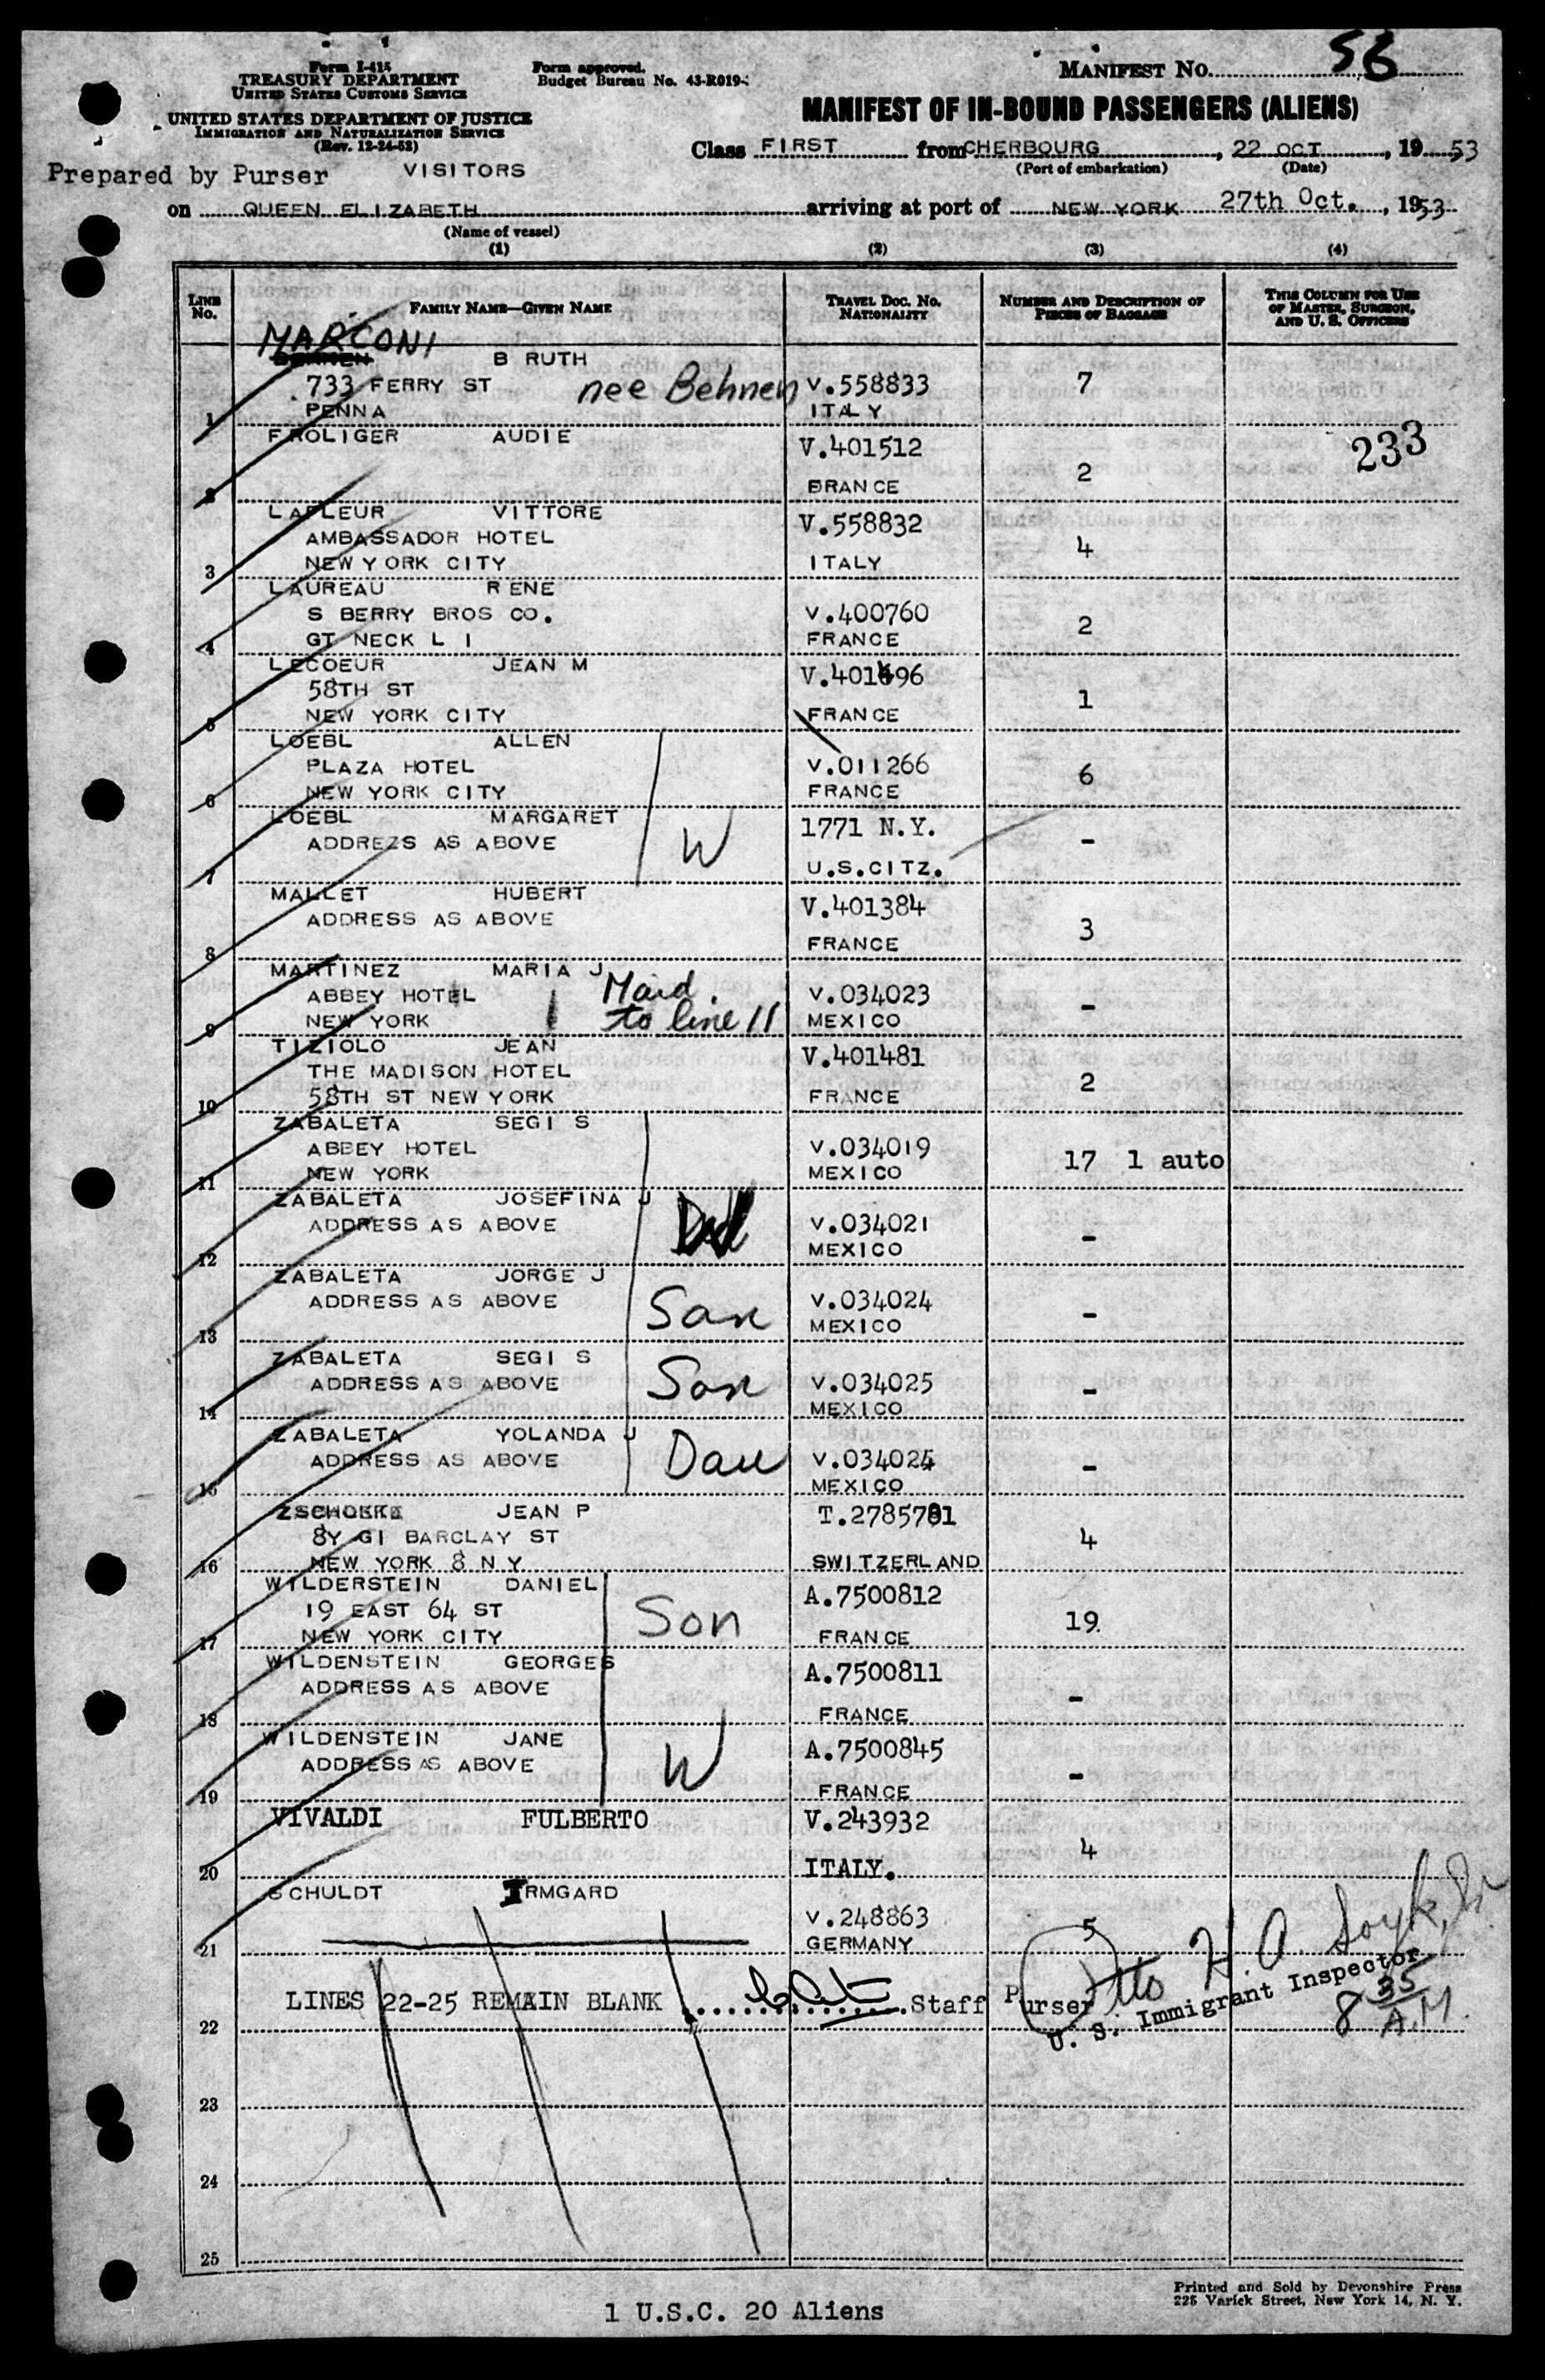 Form I-415
TREASURY DEPARTMENT
UNITED STATES CUSTOMS SERVICE
UNITED STATES DEPARTMENT OF JUSTICE
IMMIGRATION AND NATURALIZATION SERVICE
(Rev. 12-24-52)
Form approved.
Budget Bureau No. 43-R019-
MANIFEST NO. 56
MANIFEST OF IN-BOUND PASSENGERS (ALIENS)
Class FIRST from CHERBOURG, 22 OCT, 1953
(Port of embarkation) (Date)
Prepared by Purser VISITORS
on QUEEN ELIZABETH arriving at port of NEW YORK 27th Oct., 1953
(Name of vessel)
(1) (2) (3) (4)
LINE NO. FAMILY NAME—GIVEN NAME TRAVEL DOC. NO. NATIONALITY NUMBER AND DESCRIPTION OF PIECES OF BAGGAGE THIS COLUMN FOR USE OF MASTER, SURGEON, AND U. S. OFFICERS
MARCONI
BEHNEN B RUTH
733 FERRY ST nee Behnen V.558833 7
1 PENNA ITALY
FROLIGER AUDIE V.401512 233
2 BRANCE 2
LAFLEUR VITTORE V.558832
AMBASSADOR HOTEL 4
3 NEW YORK CITY ITALY
LAUREAU RENE
S BERRY BROS CO. V.400760 2
4 GT NECK L I FRANCE
LECOEUR JEAN M V.401696
58TH ST 1
5 NEW YORK CITY FRANCE
LOEBL ALLEN
PLAZA HOTEL V.011266 6
6 NEW YORK CITY FRANCE
LOEBL MARGARET 1771 N.Y.
ADDREZS AS ABOVE W -
7 U.S.CITZ.
MALLET HUBERT V.401384
ADDRESS AS ABOVE 3
8 FRANCE
MARTINEZ MARIA J
ABBEY HOTEL Maid. V.034023 -
9 NEW YORK to line 11 MEXICO
TIZIOLO JEAN V.401481
THE MADISON HOTEL 2
10 58TH ST NEW YORK FRANCE
ZABALETA SEGI S
ABBEY HOTEL V.034019 17 1 auto
11 NEW YORK MEXICO
ZABALETA JOSEFINA J
ADDRESS AS ABOVE W V.034021 -
12 MEXICO
ZABALETA JORGE J
ADDRESS AS ABOVE Son V.034024 -
13 MEXICO
ZABALETA SEGI S
ADDRESS AS ABOVE Son V.034025 -
14 MEXICO
ZABALETA YOLANDA J
ADDRESS AS ABOVE Dau V.034024 -
15 MEXICO
ZSCHOKKE JEAN P T.2785781
8Y GI BARCLAY ST 4
16 NEW YORK 8 N Y SWITZERLAND
WILDERSTEIN DANIEL A.7500812
19 EAST 64 ST Son 19
17 NEW YORK CITY FRANCE
WILDENSTEIN GEORGES A.7500811
ADDRESS AS ABOVE -
18 FRANCE
WILDENSTEIN JANE A.7500845
ADDRESS AS ABOVE W -
19 FRANCE
VIVALDI FULBERTO V.243932
20 ITALY. 4
SCHULDT IRMGARD
V.248863 5
21 GERMANY
LINES 22-25 REMAIN BLANK Staff Purser
Otto H. A. Jr.
U. S. Immigrant Inspector
8 35 A.M.
22
23
24
25
Printed and Sold by Devonshire Press
225 Varick Street, New York 14, N. Y.
1 U.S.C. 20 Aliens